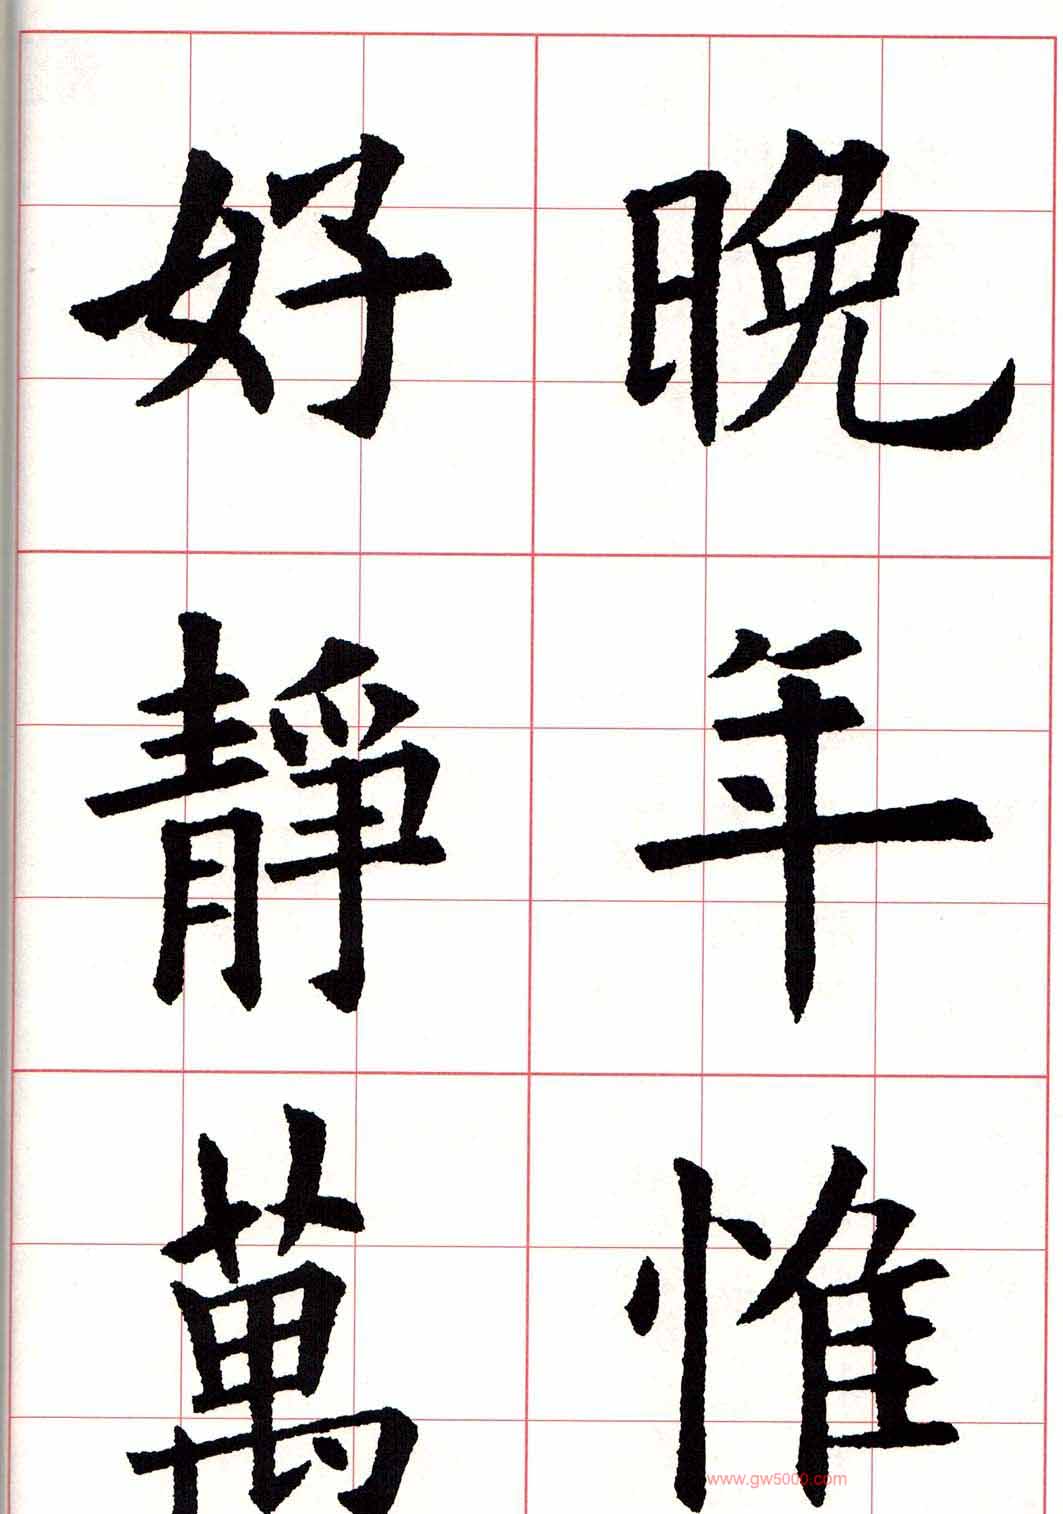 晚年惟
好靜萬
www.gw5000.com